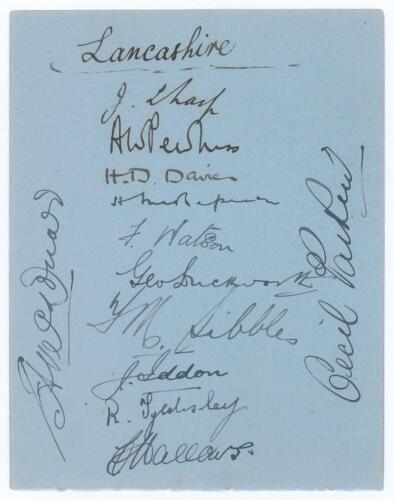 Lancashire
J. Sharp
H. D. Davies
H Makepeace
F. Watson
Geo Duckworth
F M. Sibbles
J. Iddon
R. Tyldesley
C Hallows.
Cecil Parkin